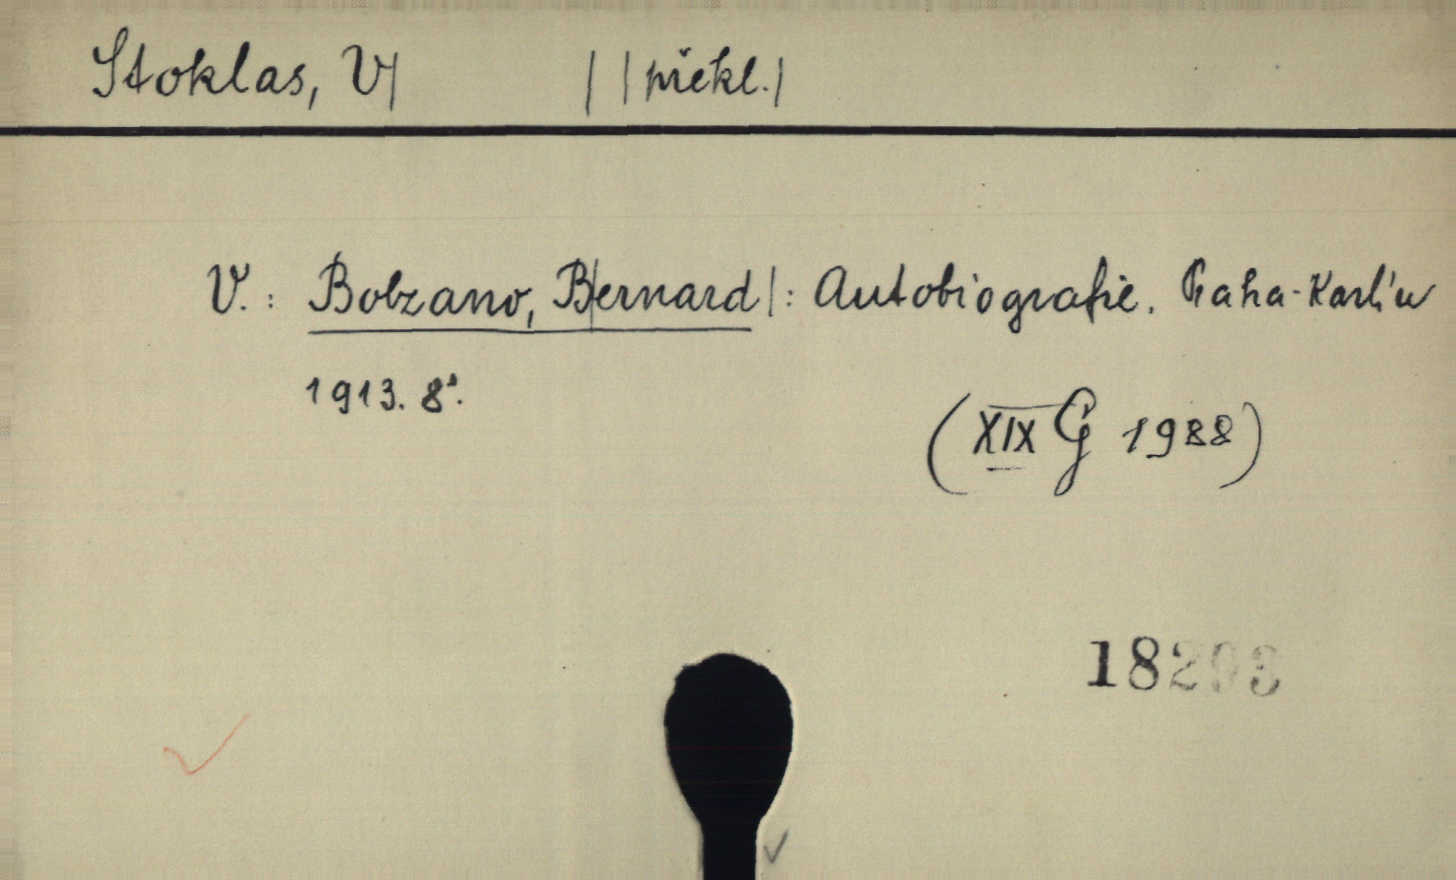 Stoklas, V| | |překl.|
V.: Bolzano, B|ernard|: Autobiografie. Praha-Karlín
1913. 8°.
(XIX G 1988)
18293